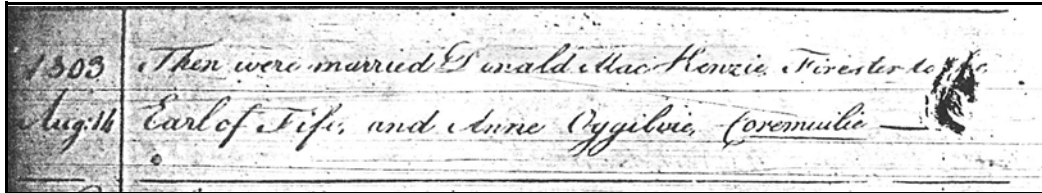 1803 Then were married Donald MacKenzie, Firester to the
Aug: 14 Earl of Fife, and Anne Oygilvie, Coremuilie